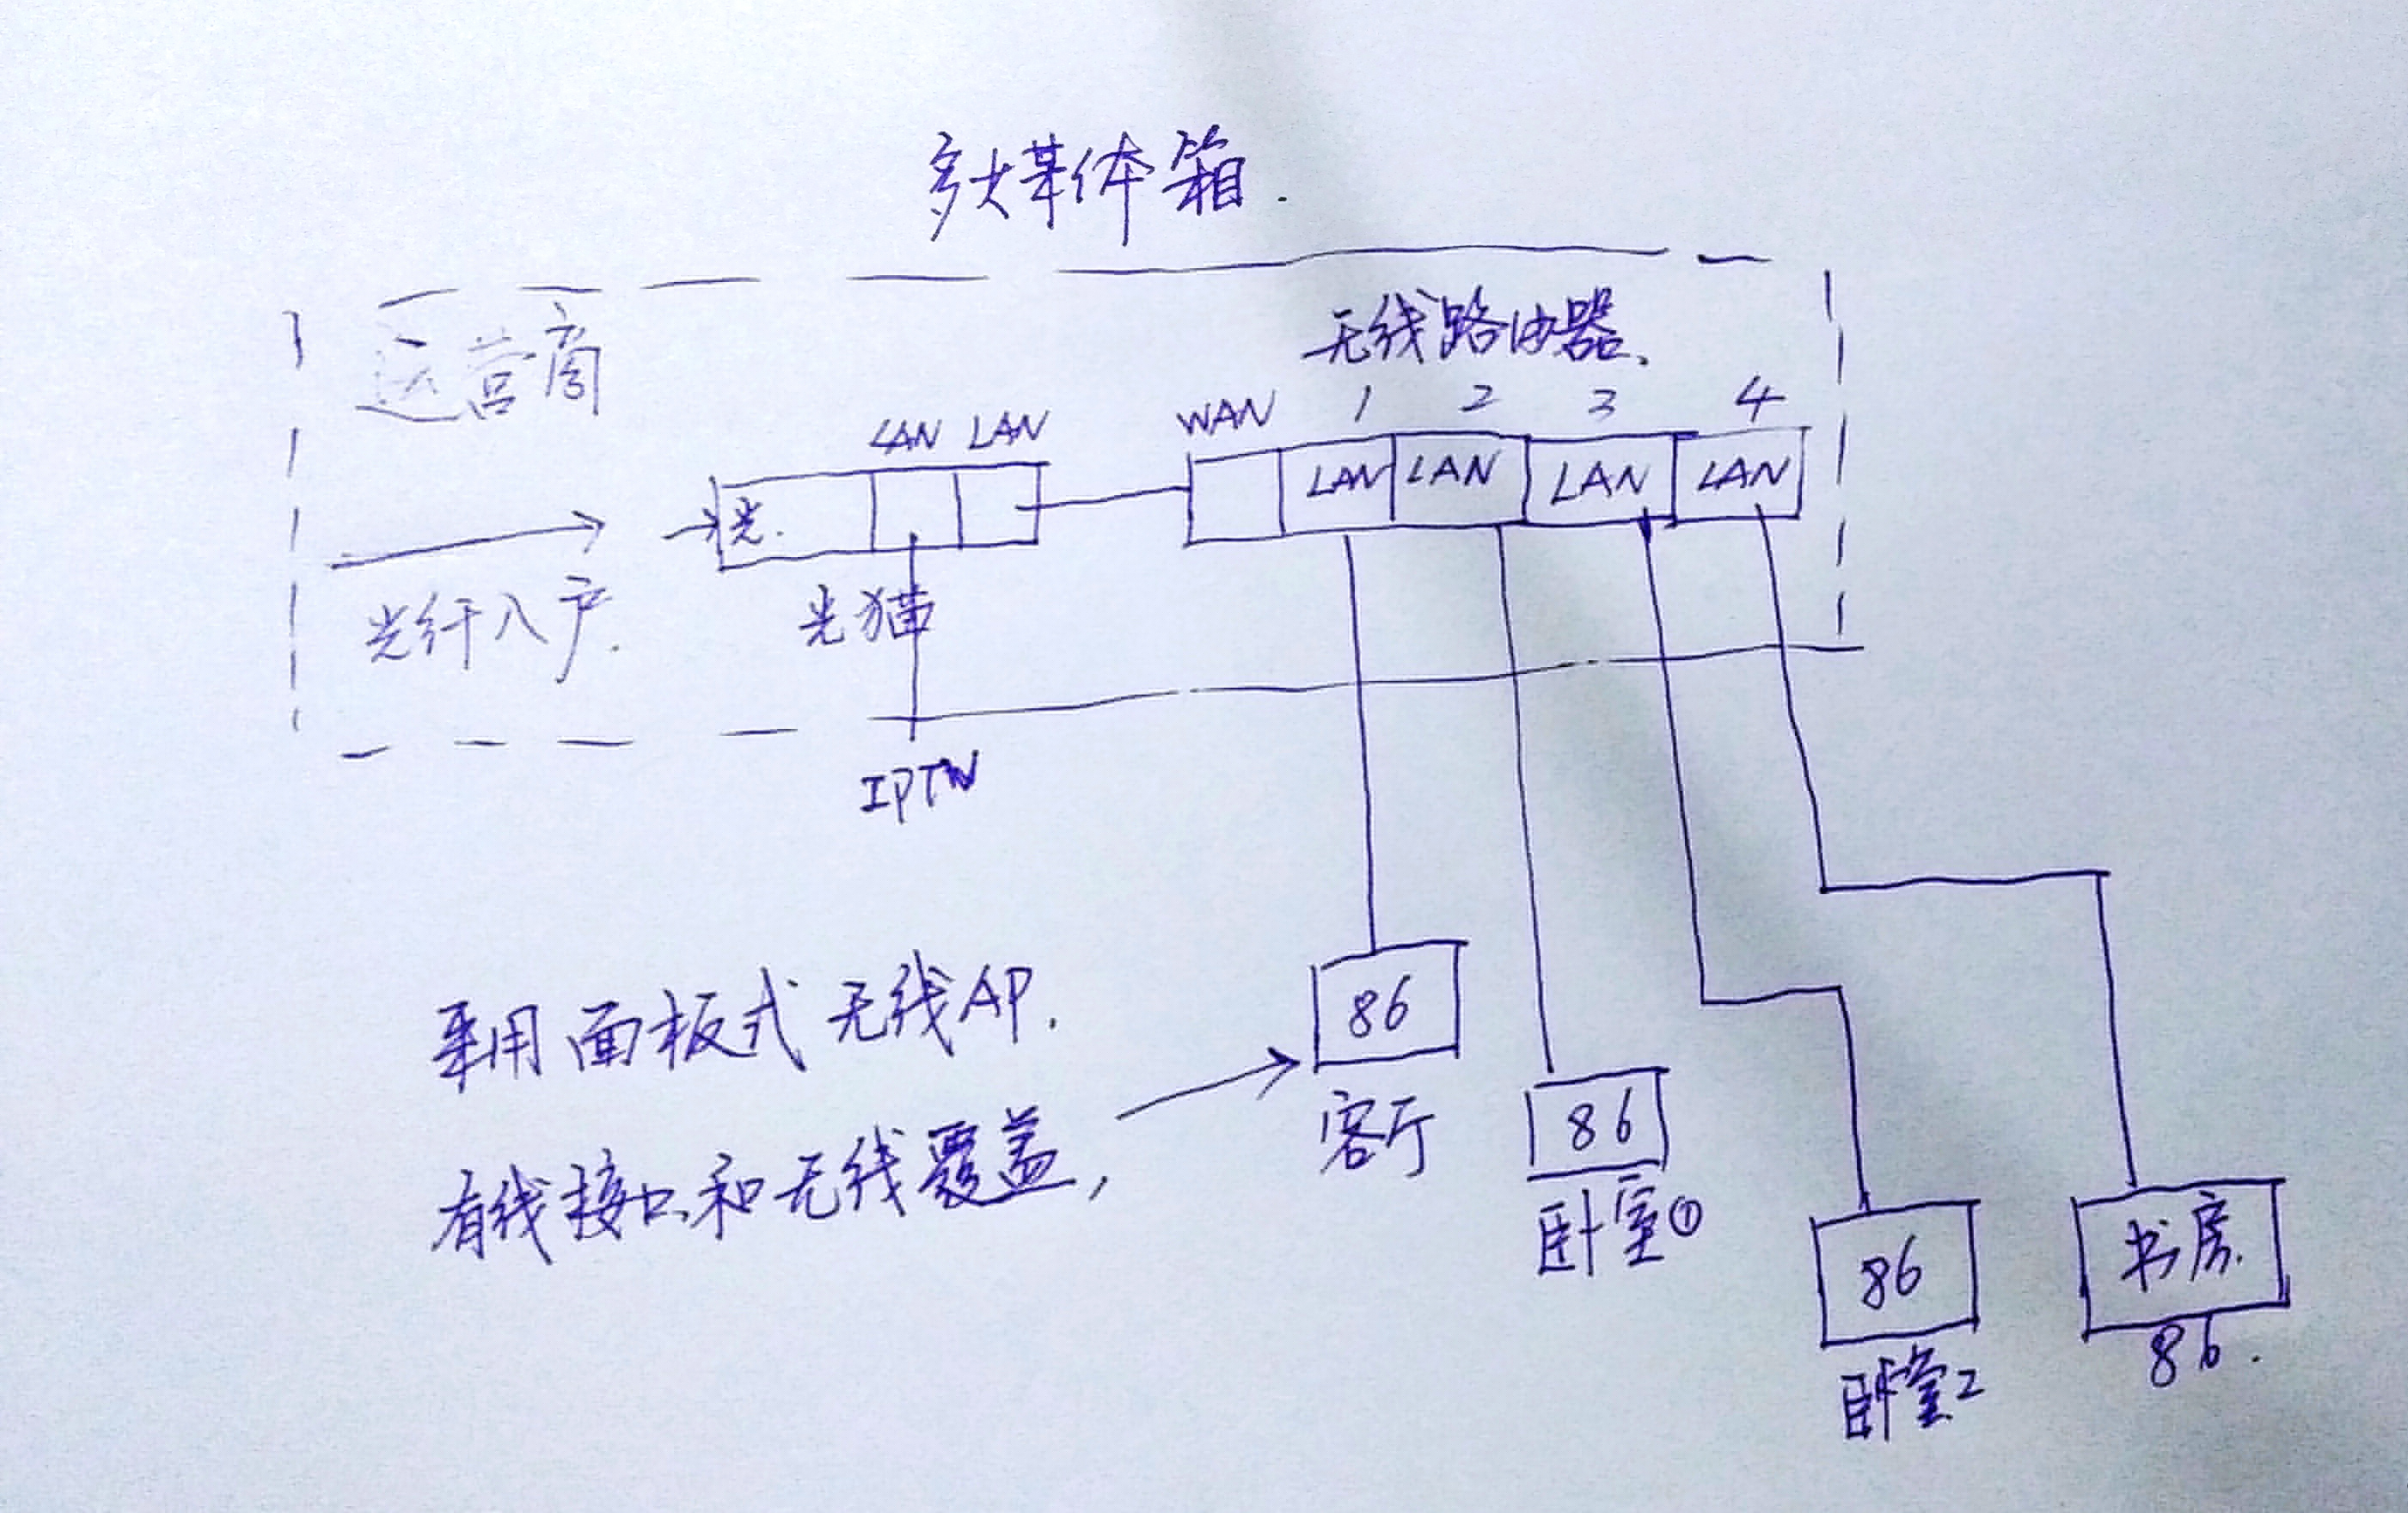 多媒体箱.
运营商
无线路由器.
1 2 3 4
LAN LAN WAN
光. LAN LAN LAN LAN
光纤入户.
光猫
IPTV
采用面板式无线AP.
有线接口和无线覆盖,
86
客厅
86
卧室①
86
卧室2
书房.
86.